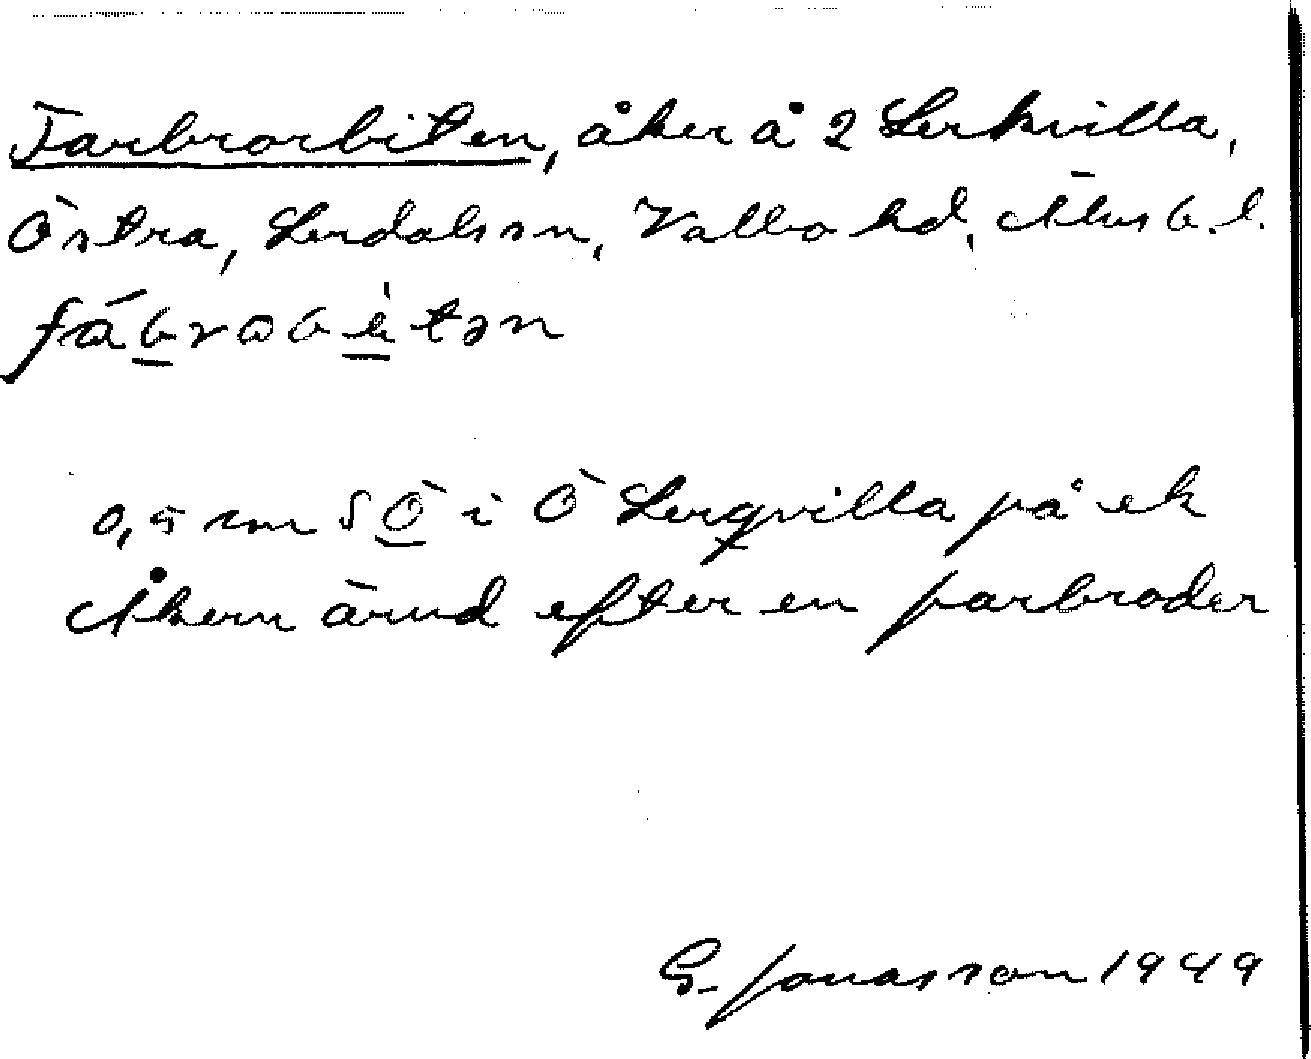 Farbrorbiten, åker å 2 Lerkvilla,
Östra, Lerdals sn, Valbo hd, Älvsb. l.
fàbrobètən
0,5 km SÖ i Ö Lerqvilla på ek
Åkern ärvd efter en farbroder
G. Jonasson 1949